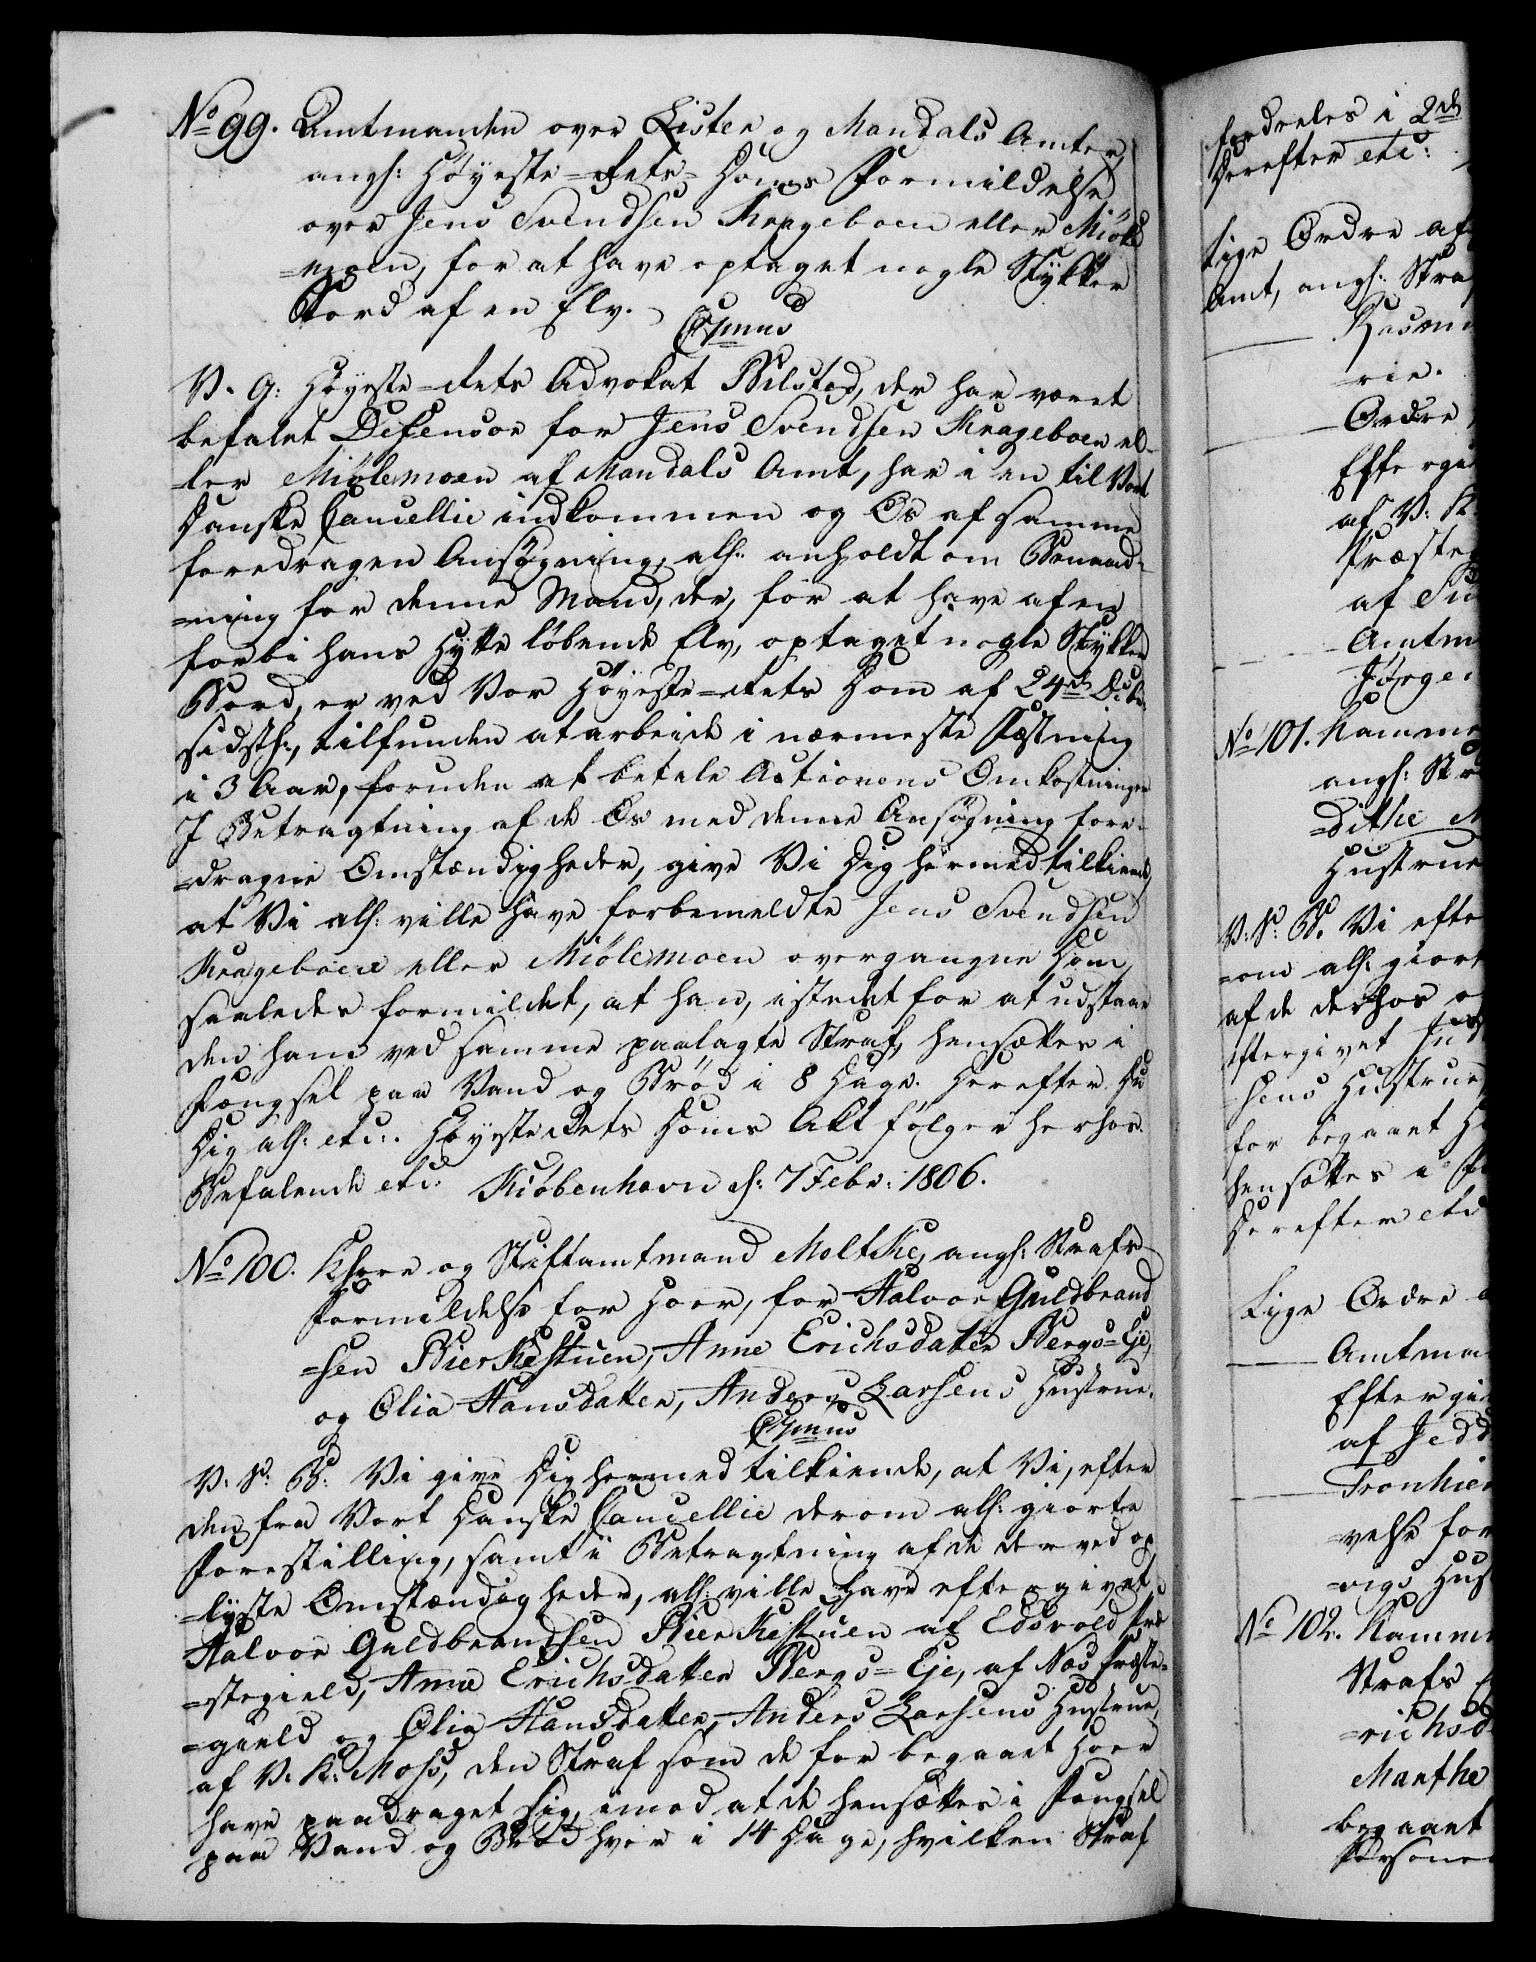 No 99. Amtmanden over Lister og Mandals Amter,
angs: Høyeste-Rets-Doms Formildelse
over Jens Svendsen Krageboen eller Miøle
=moen, for at have optaget nogle Stykker
Bord af en Elv.
C7mus
V. G: Høyeste-Rets Advokat Bilsted, der har været
befalet Defensor for Jens Svendsen Krageboen el-
=ler Miølemoen af Mandals Amt, har i en til Vort
Danske Cancellie indkommen og Os af samme
foredragen Ansøgning, alh: anholdt om Benaad-
=ning for denne Mand, der, for at have af en
forbi hans Hytte løbende Elv, optaget nogle Stykker
Bord, er ved Vor Høyeste-Rets Dom af 24de Octbr:
sidsth:, tilfunden at arbeide i nærmeste Fæstning
i 3 Aar, foruden at betale Actionens Omkostninger
I Betragtning af de Os med denne Ansøgning fore-
=dragne Omstændigheder, give Vi Dig hermed tilkiende,
at Vi alh: ville have forbemeldte Jens Svendsen
Krageboen eller Miølemoen overgangne Dom,
saaledes formildet, at han, istedet for at udstaae
den ham ved samme paalagte Straf, hensættes i
Fængsel paa Vand og Brød i 8 Dage. Herefter Du
Dig alh: etc:. HøyesteRets Doms Akt følger herhos.
Befalende etc: Kiøbenhavn d: 7 Febr: 1806.
No 100. Khere og Stiftamtmand Moltke, angh: Strafs
Formildelse for Hoer, for Halvor Guldbrand
=sen Bierkestuen, Anne Erichsdatter Bergs=Eje,
og Olia Hansdatter, Anders Larsens Hustrue.
C7mus
V. S: B: Vi give Dig hermed tilkiende, at Vi, efter
den fra Vort Danske Cancellie derom alh: giorte
Forestilling, samt i Betragtning af de derved op
=lyste Omstændigheder, alh: ville have eftergivet
Halvor Guldbrandsen Bierkestuen af Edsvold Præ
=stegield, Anne Erichsdatter Bergs=Eje, af Næs Præste=
=gield og Olia Hansdatter, Anders Larsens Hustrue,
af V: K: Moss, den Straf som de for begaaet Hoer
have paadraget sig, imod at de hensættes i Fængsel
paa Vand og Brød hver i 14 Dage, hvilken Straf
fordeeles i 2de
Herefter etc:
Lige Ordre af
Amt, angh: Stra
Rasmu
=rie.
Ordre
Eftergi
af V: K
Præsteg
af
Amtm
Jørge
No 101. Kamme
angh: Str
=dithe M
Hustrue
V: S: B. Vi efte
=om alh: giort
af de derhos o
eftergivet
Jens Hustrue
for begaaet H
hensættes i F
Herefter etc
Lige Ordre a
Amtma
Eftergi
af Jedd
Tronhie
=velse for
=vigs Hus
No 102. Kamme
Strafs
=richsd
Marthe
begaaet
Persone